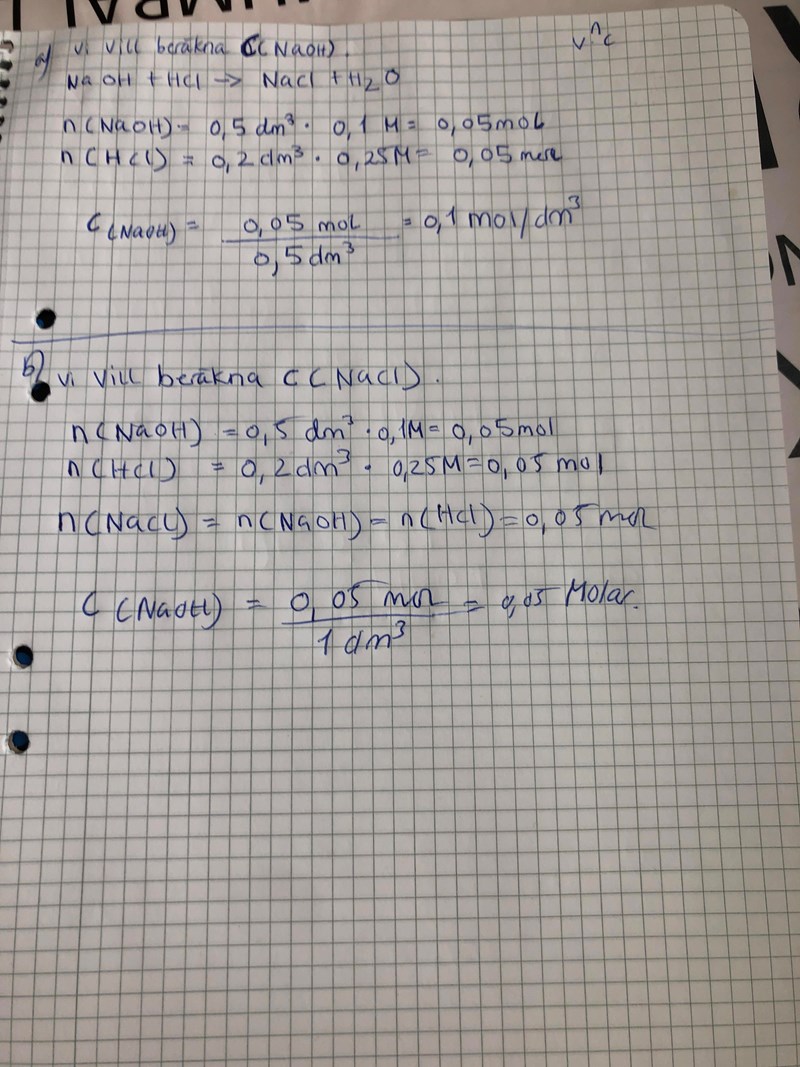 a) vi vill beräkna C(NaOH).
v n c
NaOH + HCl → NaCl + H2O
n(NaOH) = 0,5 dm³ · 0,1 M = 0,05 mol
n(HCl) = 0,2 dm³ · 0,25M = 0,05 mol
C(NaOH) = 0,05 mol / 0,5 dm³ = 0,1 mol/dm³
b) vi vill beräkna C(NaCl).
n(NaOH) = 0,5 dm³ · 0,1M = 0,05mol
n(HCl) = 0,2dm³ · 0,25M = 0,05 mol
n(NaCl) = n(NaOH) = n(HCl) = 0,05 mol
C(NaOH) = 0,05 mol / 1 dm³ = 0,05 Molar.